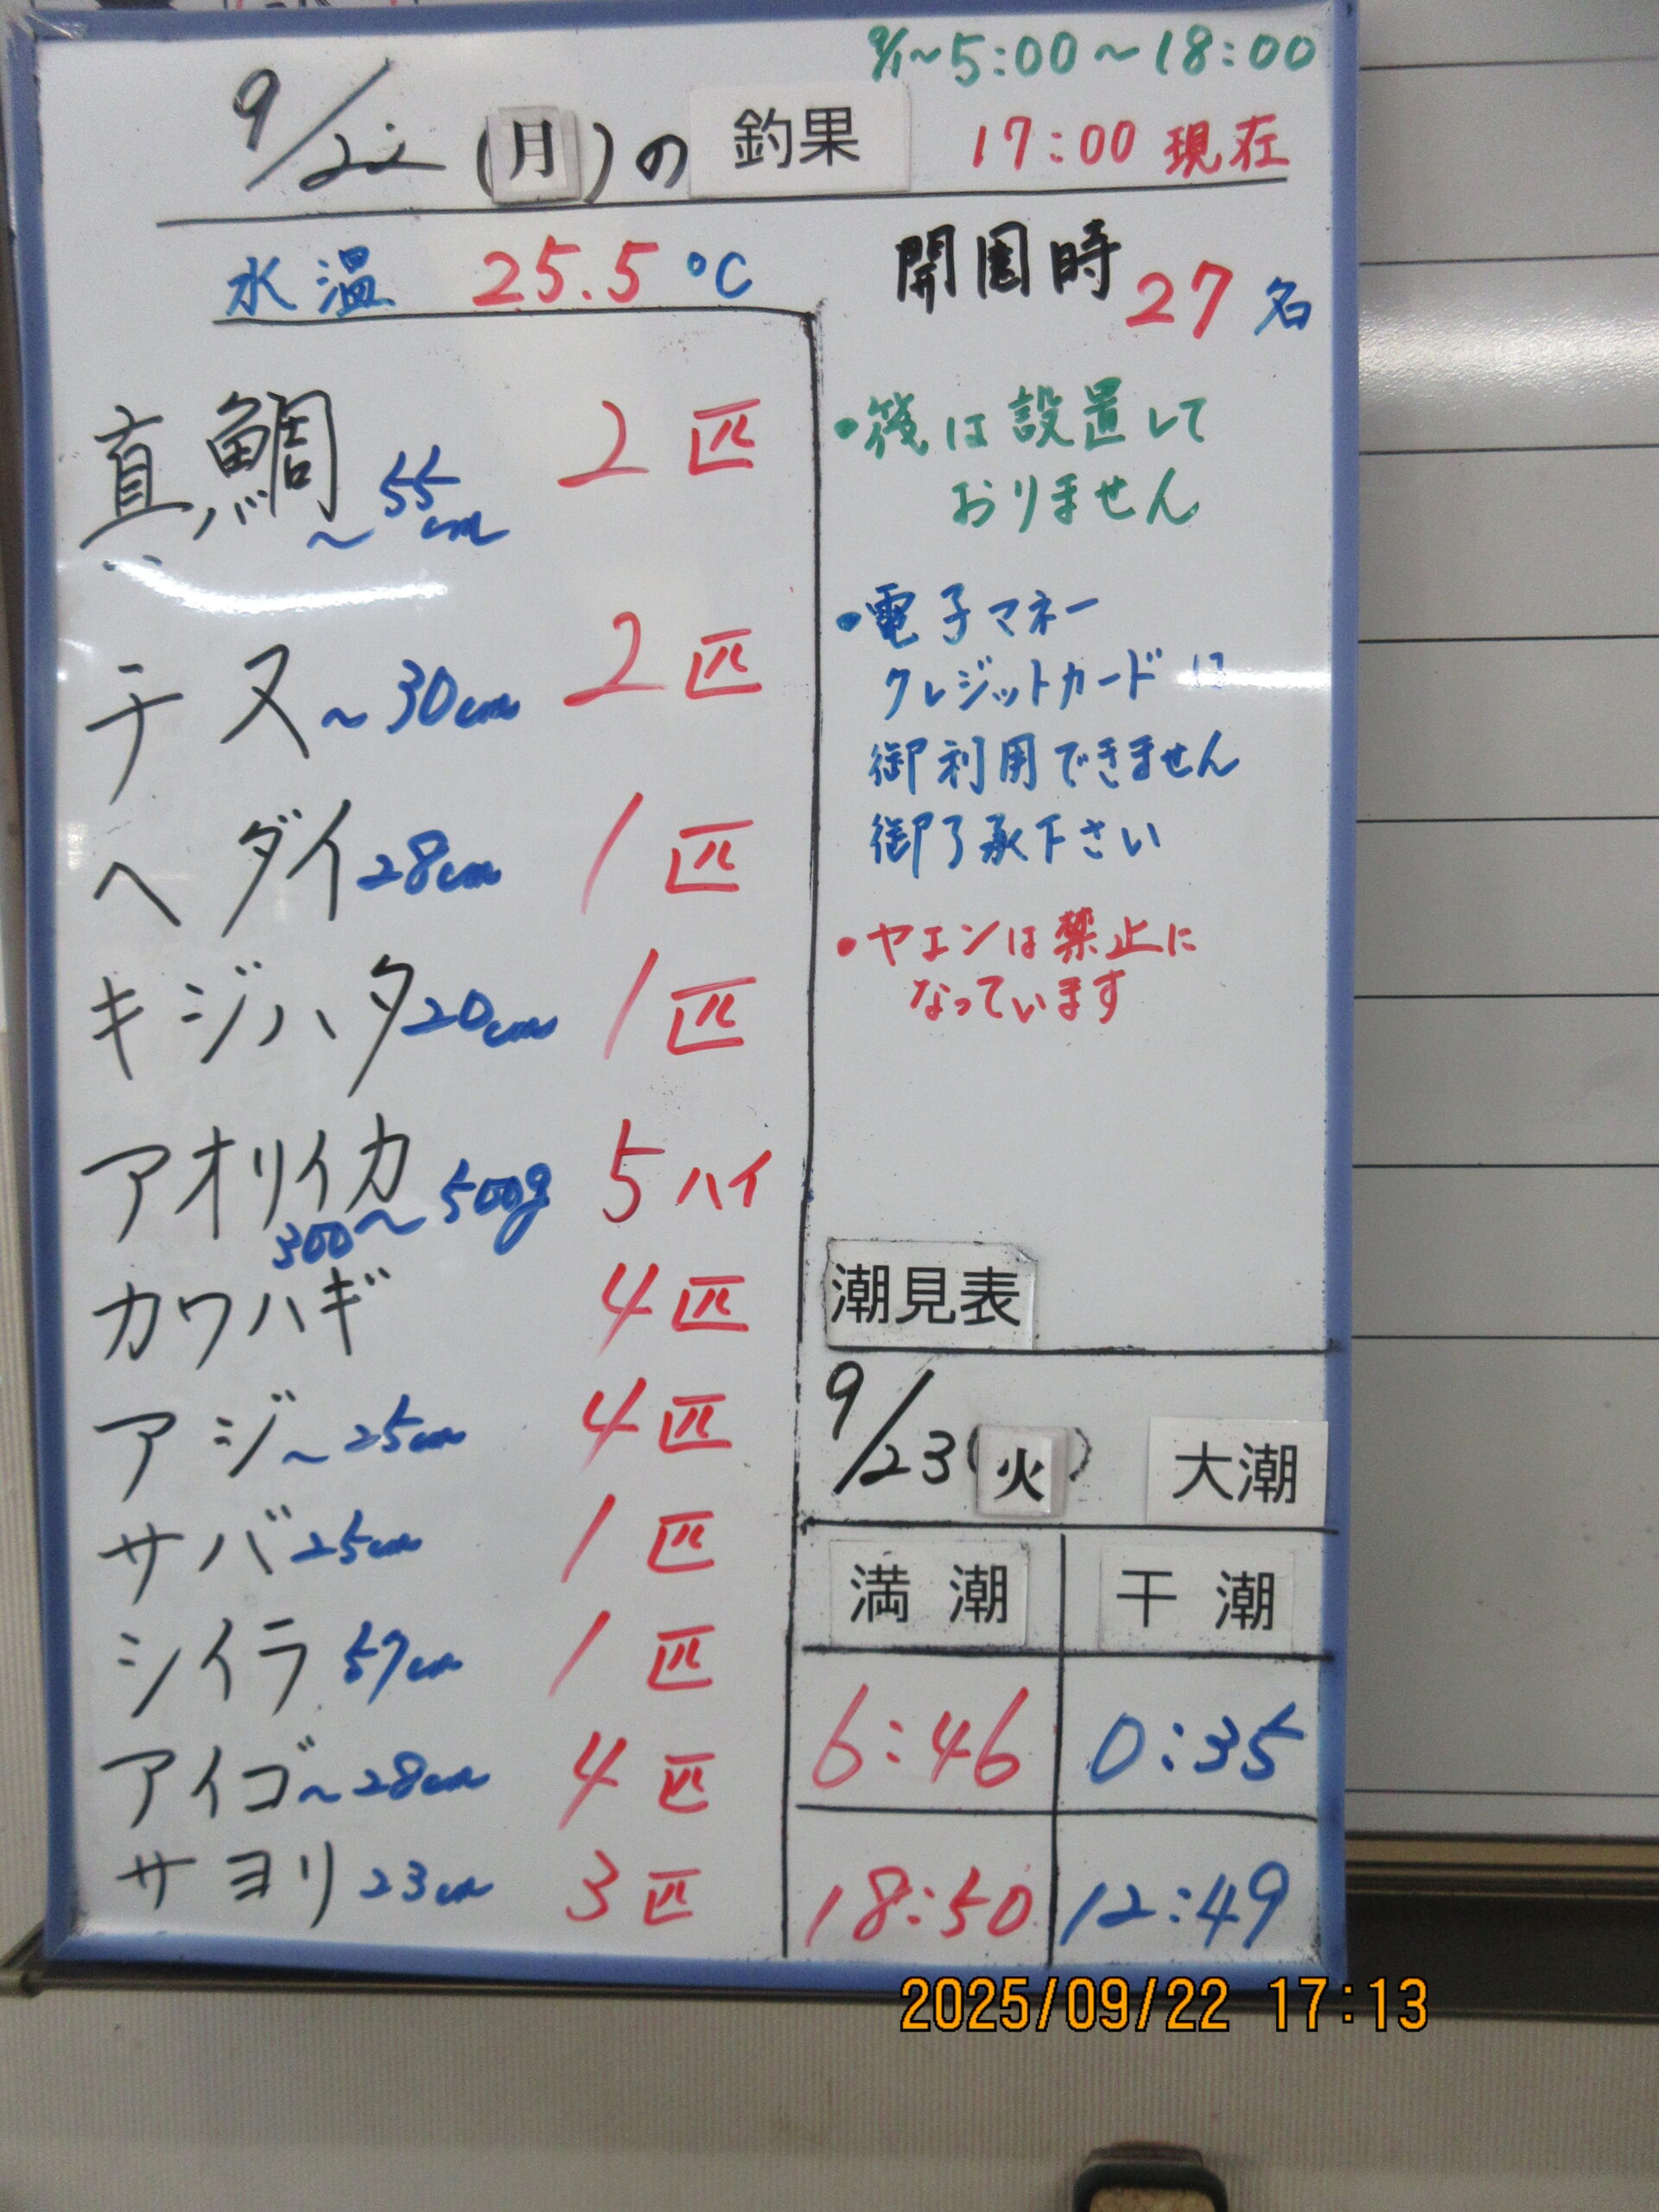 9/1~5:00~18:00
9/22(月)の 釣果 17:00 現在
水温 25.5℃
開園時 27名
真鯛 ~55cm 2匹
チヌ ~30cm 2匹
ヘダイ 28cm 1匹
キジハタ 20cm 1匹
アオリイカ 300~500g 5ハイ
カワハギ 4匹
アジ ~25cm 4匹
サバ 25cm 1匹
シイラ 57cm 1匹
アイゴ ~28cm 4匹
サヨリ 23cm 3匹
・筏は設置して
おりません
・電子マネー
クレジットカードは
御利用できません
御了承下さい
・ヤエンは禁止に
なっています
潮見表
9/23(火) 大潮
満潮 干潮
6:46 0:35
18:50 12:49
2025/09/22 17:13